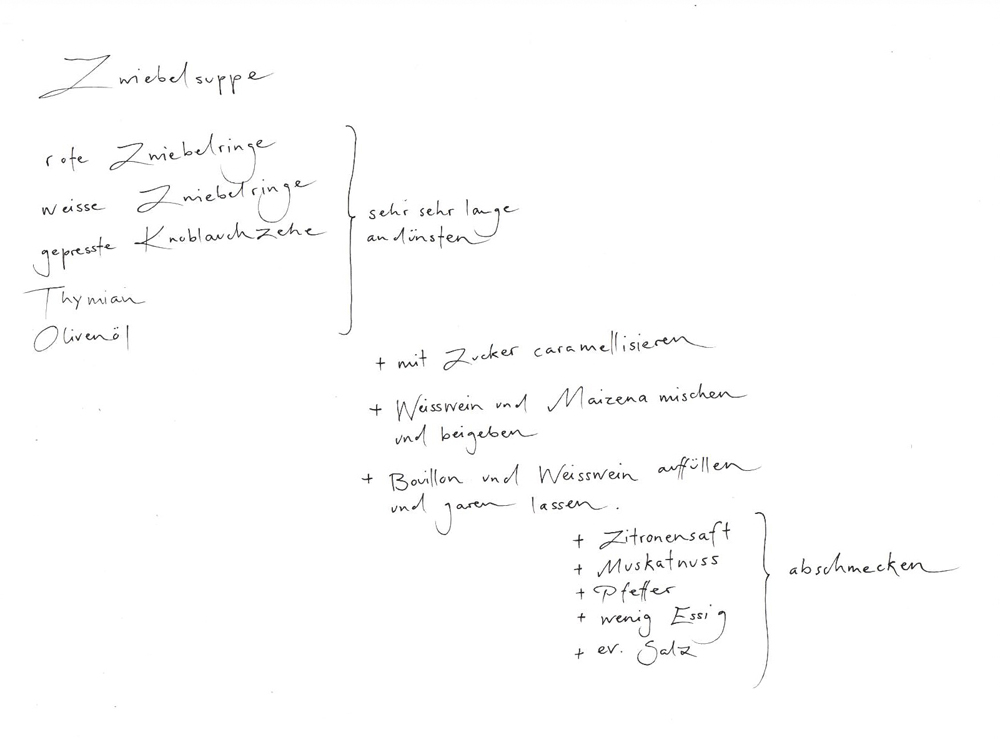 Zwiebelsuppe
rote Zwiebelringe
weisse Zwiebelringe
gepresste Knoblauchzehe
Thymian
Olivenöl
sehr sehr lange
andünsten
+ mit Zucker caramellisieren
+ Weisswein und Maizena mischen
und beigeben
+ Bouillon und Weisswein auffüllen
und garen lassen.
+ Zitronensaft
+ Muskatnuss
+ Pfeffer
+ wenig Essig
+ ev. Salz
abschmecken